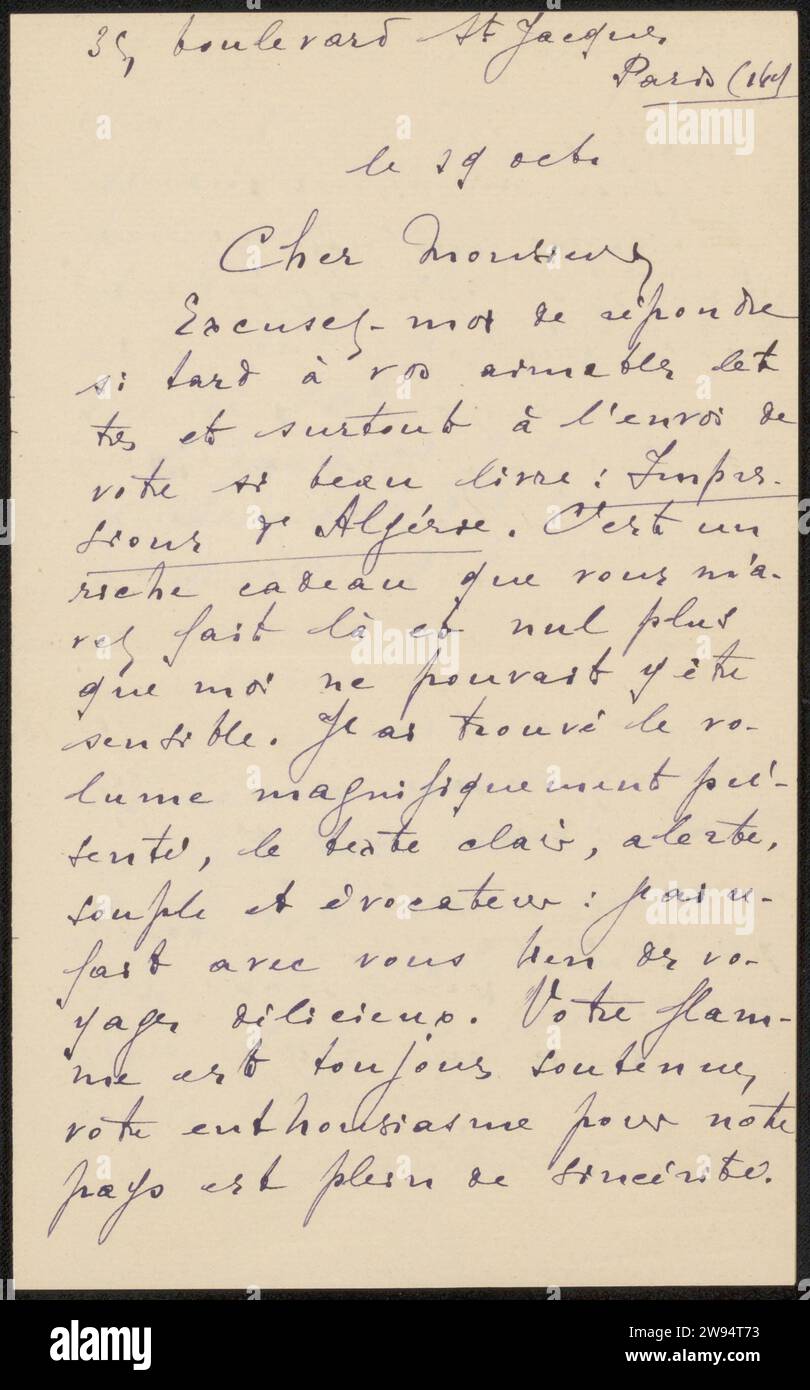 35, boulevard St Jacques
Paris (14e)
le 29 oct.
Cher Monsieur,
Excusez-moi de répondre
si tard à vos aimables let
tres et surtout à l'envoi de
votre si beau livre : Impres-
sions d'Algérie. C'est un
riche cadeau que vous m'a-
vez fait là et nul plus
que moi ne pouvait y être
sensible. J'ai trouvé le vo-
lume magnifiquement pré-
senté, le texte clair, alerte,
souple et évocateur : j'ai re-
fait avec vous bien des vo-
yages délicieux. Votre flam-
me est toujours soutenue,
votre enthousiasme pour notre
pays est plein de sincérité.
a
alamy
alamy
a
alamy
a
alamy
Image ID: 2W94T73
www.alamy.com